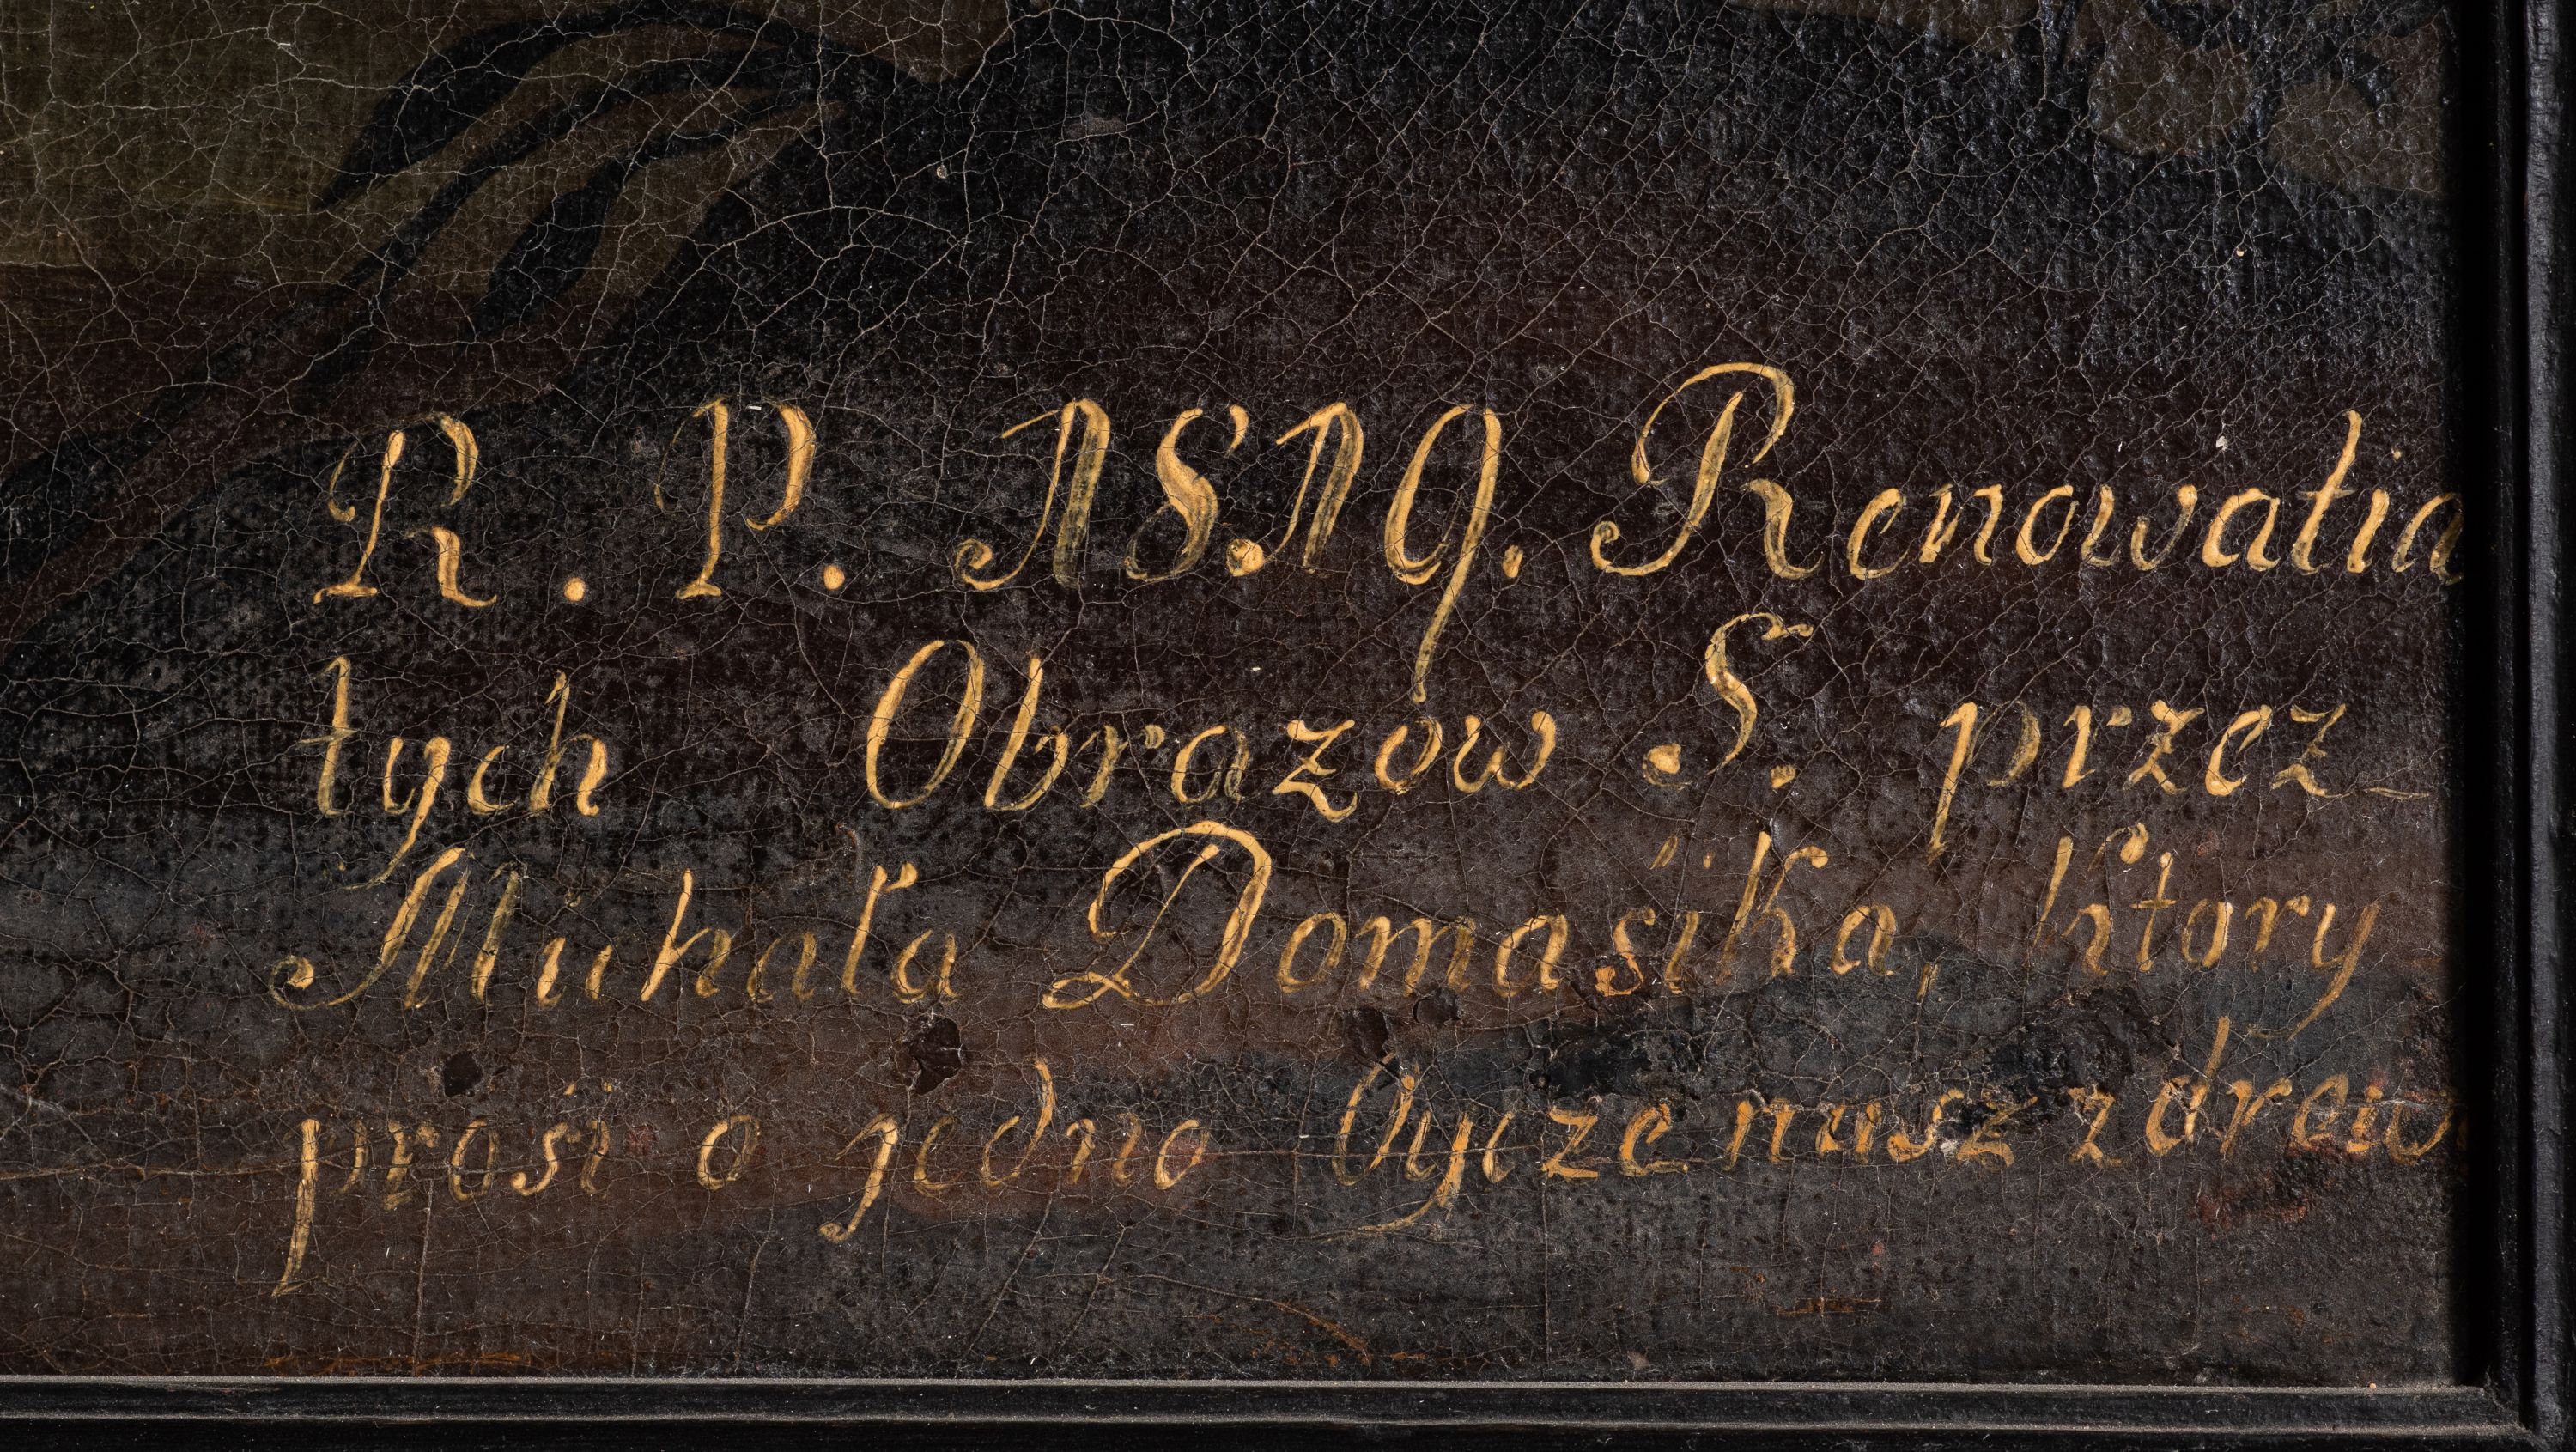 R. P. 1819. Renowatia
tych Obrazow S. przez
Michała Domasika, ktory
prosi o jedno Oycze nasz zdrow